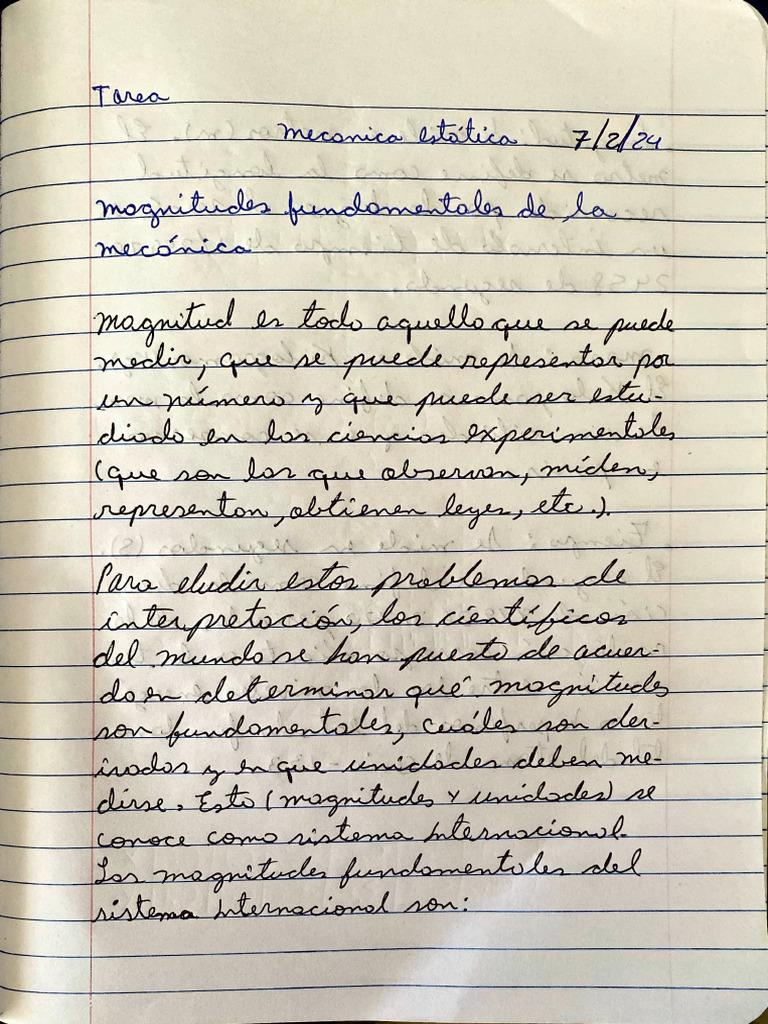 Tarea
mecanica estática 7/2/24
magnitudes fundamentales de la
mecánica
Magnitud es todo aquello que se puede
medir, que se puede representar por
un número y que puede ser estu-
diado en las ciencias experimentales
(que son las que observan, míden,
representan, obtienen leyes, etc.).
Para eludir estos problemas de
interpretación, los científicos
del mundo se han puesto de acuer-
do en determinar qué magnitudes
son fundamentales, cuáles son der-
ivadas y en que unidades deben me-
dirse. Esto (magnitudes y unidades) se
conoce como sistema Internacional.
Las magnitudes fundamentales del
sistema Internacional son: